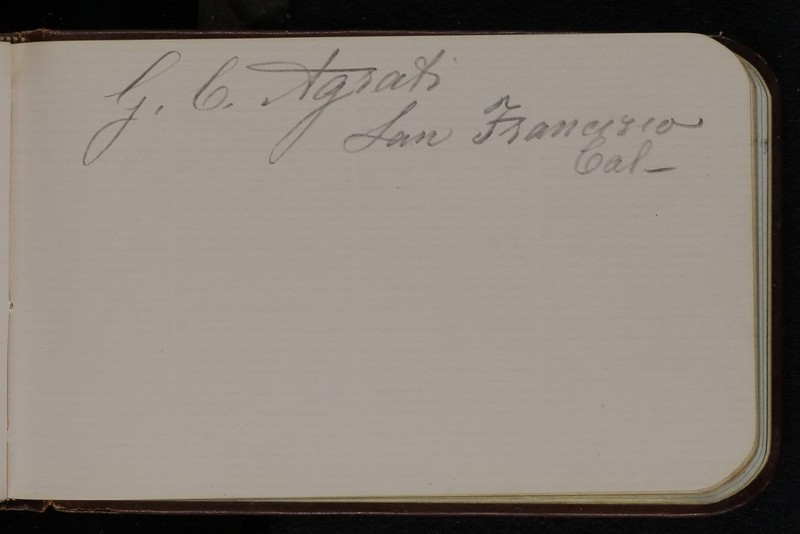 G. C. Agrati
San Francisco
Cal–